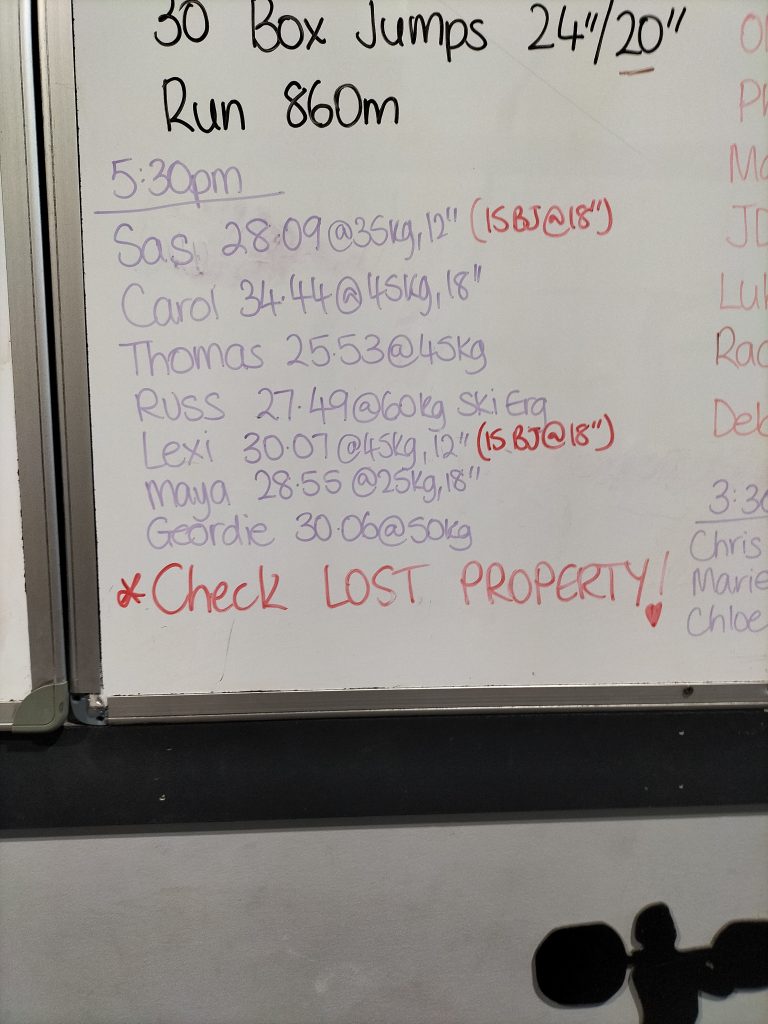 30 Box Jumps 24"/20"
Run 860m
5:30pm
Sas 28.09@35kg, 12" (15BJ@18")
Carol 34.44@45kg, 18"
Thomas 25.53@45kg
Russ 27.49@60kg Ski Erg
Lexi 30.07@45kg, 12" (15BJ@18")
Maya 28.55@25kg, 18"
Geordie 30.06@50kg
*Check LOST PROPERTY!
JD
Chris
Marie
Chloe